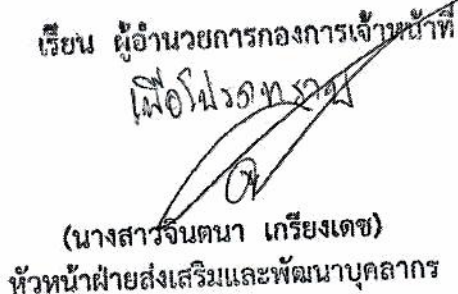 เรียน ผู้อำนวยการกองการเจ้าหน้าที่
เพื่อโปรดทราบ
(นางสาวจินตนา เกรียงเดช)
หัวหน้าฝ่ายส่งเสริมและพัฒนาบุคลากร